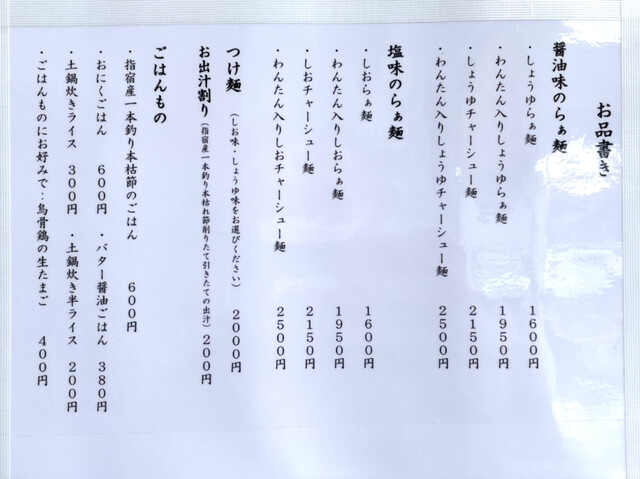 お品書き
醤油味のらぁ麺
・しょうゆらぁ麺 1600円
・わんたん入りしょうゆらぁ麺 1950円
・しょうゆチャーシュー麺 2150円
・わんたん入りしょうゆチャーシュー麺 2500円
塩味のらぁ麺
・しおらぁ麺 1600円
・わんたん入りしおらぁ麺 1950円
・しおチャーシュー麺 2150円
・わんたん入りしおチャーシュー麺 2500円
つけ麺 (しお味・しょうゆ味をお選びください) 2000円
お出汁割り (指宿産一本釣り本枯れ節削りたて引きたての出汁) 200円
ごはんもの
・指宿産一本釣り本枯節のごはん 600円
・おにくごはん 600円 ・バター醤油ごはん 380円
・土鍋炊きライス 300円 ・土鍋炊き半ライス 200円
・ごはんものにお好みで‥烏骨鶏の生たまご 400円